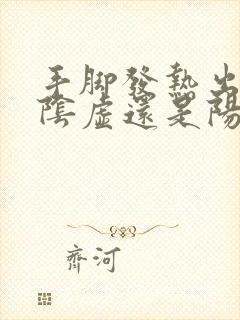 手脚發熱出
陰虛還是陽
齊河